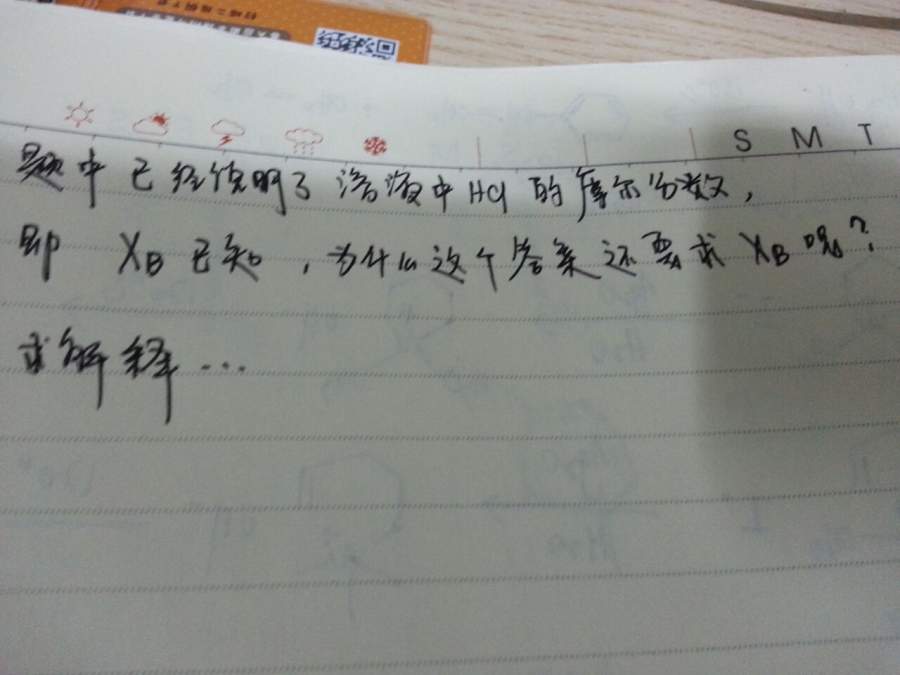 S M T
题中已经说明了溶液中HCl的摩尔分数,
即 XB已知,为什么这个答案还要求XB呢?
求解释...